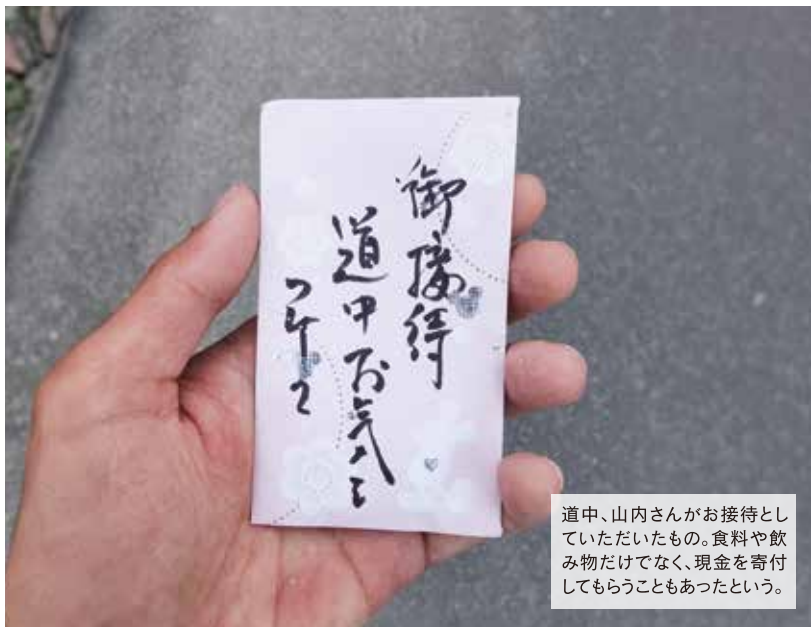 御接待
道中お気を
つけて
道中、山内さんがお接待とし
ていただいたもの。食料や飲
み物だけでなく、現金を寄付
してもらうこともあったという。